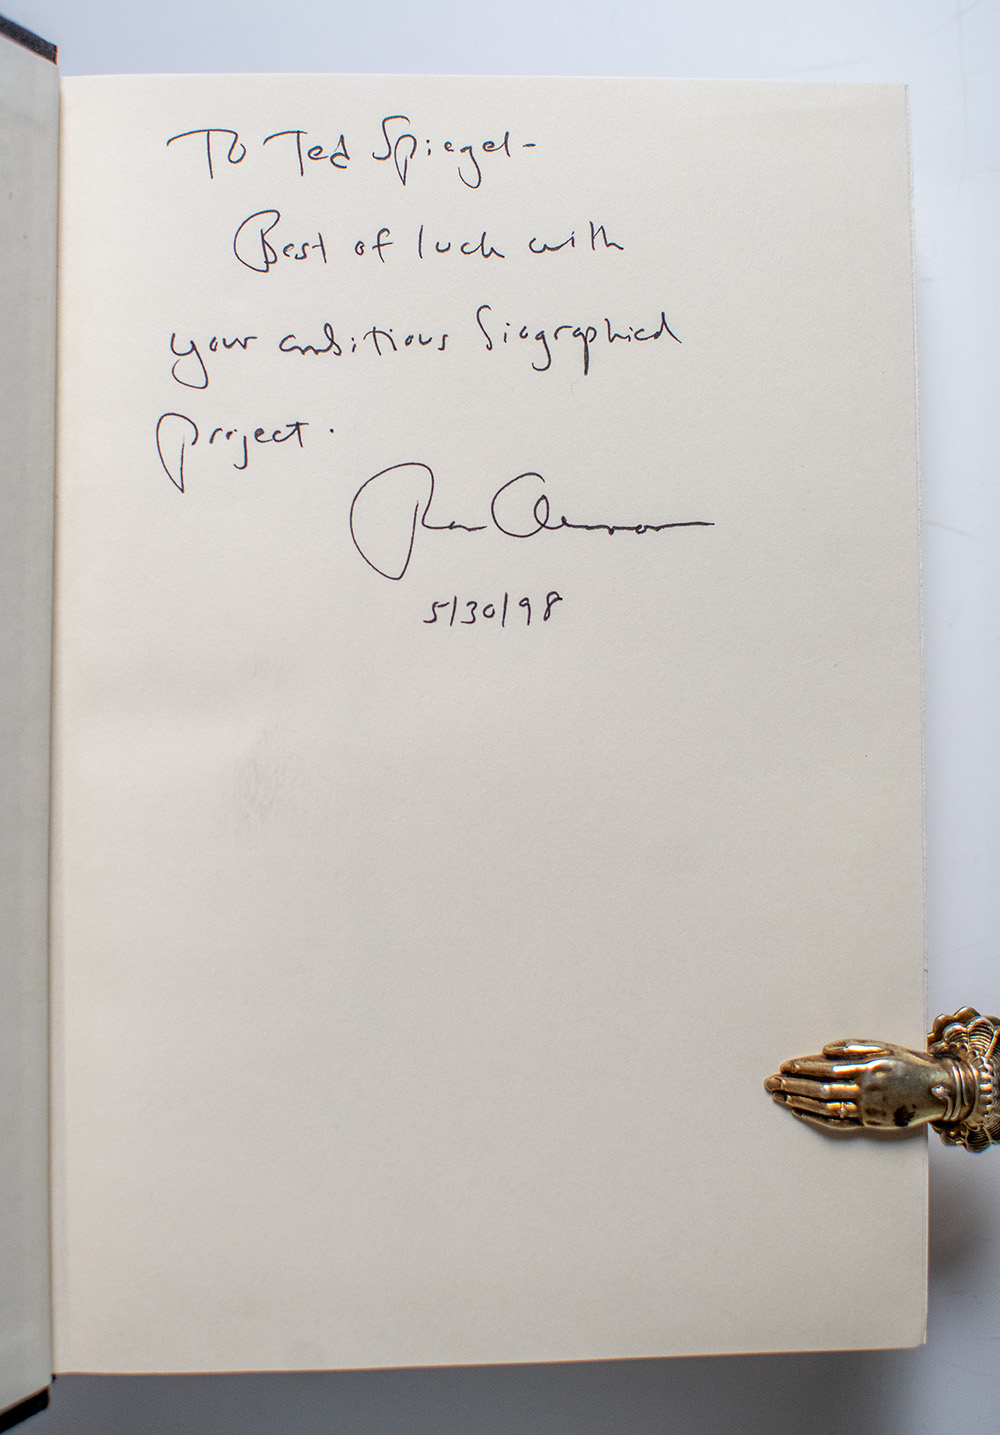 To Ted Spiegel-
Best of luck with
your ambitious biographical
project.
Ron Chernow
5/30/98